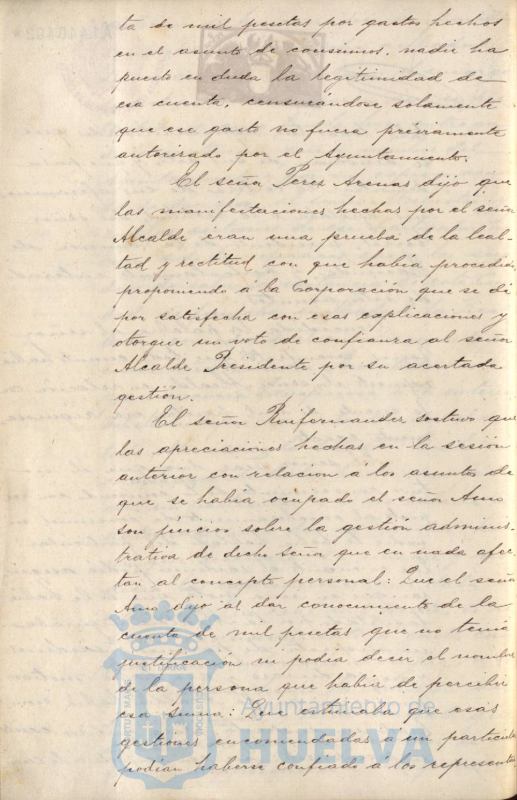 ta de mil pesetas por gastos hechos
en el asunto de consumos, nadie ha
puesto en duda la legitimidad de
esa cuenta, censurándose solamente
que ese gasto no fuera préviamente
autorizado por el Ayuntamiento.
El señor Perez Arenas dijo que
las manifestaciones hechas por el señor
Alcalde eran una prueba de la leal-
tad y rectitud con que había procedido,
proponiendo á la Corporación que se dé
por satisfecha con esas explicaciones y
otorgue un voto de confianza al señor
Alcalde Presidente por su acertada
gestión.
El señor sostuvo que
las apreciaciones hechas en la sesión
anterior con relacion á los asuntos de
que se había ocupado el señor
son júicios sobre la gestión adminis-
trativa de dicho señor que en nada afec-
tan al concepto personal: Que el señor
dijo al dar conocimiento de la
cuenta de mil pesetas que no tenía
justificación ni podia decir el nombre
de la persona que habia de percibir
esa suma: Que estimaba que esas
gestiones encomendadas a un particular
podian haberse confiado a los represent
Ayuntamiento de
HUELVA